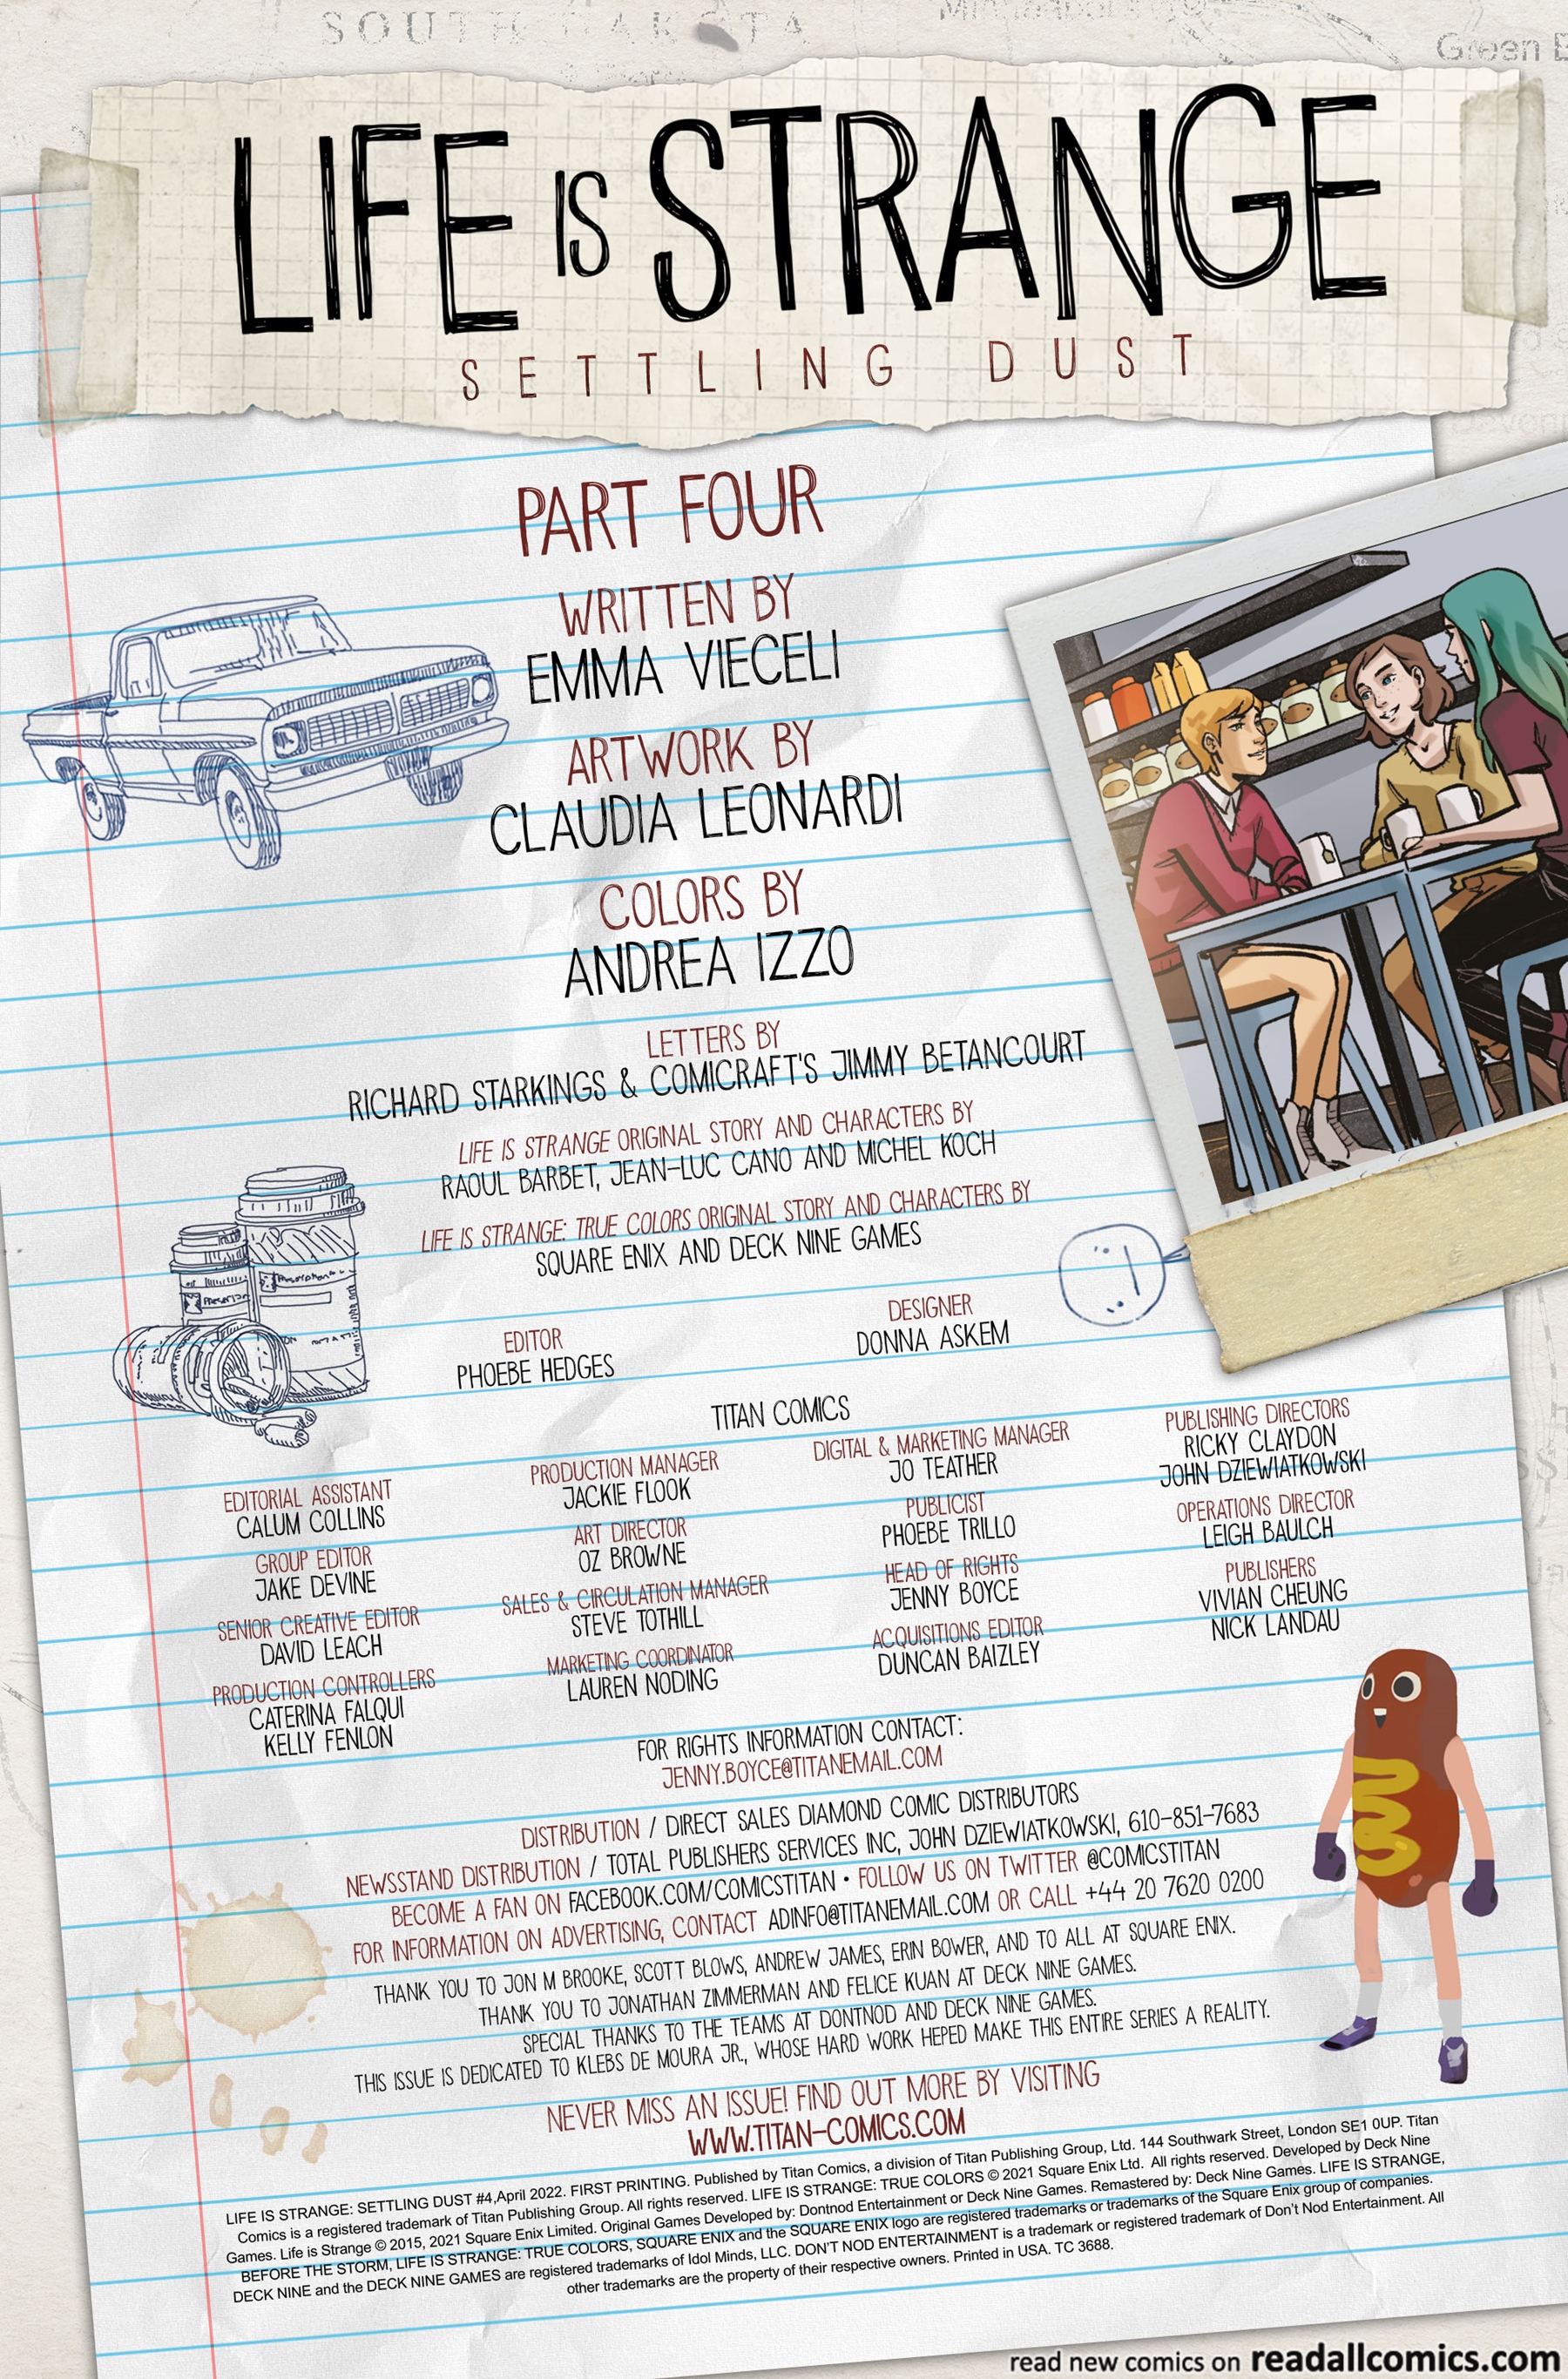 SOUTH DAKOTA
Green B
LIFE IS STRANGE
SETTLING DUST
PART FOUR
WRITTEN BY
EMMA VIECELI
ARTWORK BY
CLAUDIA LEONARDI
COLORS BY
ANDREA IZZO
LETTERS BY
RICHARD STARKINGS & COMICRAFT'S JIMMY BETANCOURT
LIFE IS STRANGE ORIGINAL STORY AND CHARACTERS BY
RAOUL BARBET, JEAN-LUC CANO AND MICHEL KOCH
LIFE IS STRANGE: TRUE COLORS ORIGINAL STORY AND CHARACTERS BY
SQUARE ENIX AND DECK NINE GAMES
EDITOR
PHOEBE HEDGES
DESIGNER
DONNA ASKEM
TITAN COMICS
EDITORIAL ASSISTANT
CALUM COLLINS
GROUP EDITOR
JAKE DEVINE
SENIOR CREATIVE EDITOR
DAVID LEACH
PRODUCTION CONTROLLERS
CATERINA FALQUI
KELLY FENLON
PRODUCTION MANAGER
JACKIE FLOOK
ART DIRECTOR
OZ BROWNE
SALES & CIRCULATION MANAGER
STEVE TOTHILL
MARKETING COORDINATOR
LAUREN NODING
DIGITAL & MARKETING MANAGER
JO TEATHER
PUBLICIST
PHOEBE TRILLO
HEAD OF RIGHTS
JENNY BOYCE
ACQUISITIONS EDITOR
DUNCAN BAIZLEY
PUBLISHING DIRECTORS
RICKY CLAYDON
JOHN DZIEWIATKOWSKI
OPERATIONS DIRECTOR
LEIGH BAULCH
PUBLISHERS
VIVIAN CHEUNG
NICK LANDAU
FOR RIGHTS INFORMATION CONTACT:
JENNY.BOYCE@TITANEMAIL.COM
DISTRIBUTION / DIRECT SALES DIAMOND COMIC DISTRIBUTORS
NEWSSTAND DISTRIBUTION / TOTAL PUBLISHERS SERVICES INC, JOHN DZIEWIATKOWSKI, 610-851-7683
BECOME A FAN ON FACEBOOK.COM/COMICSTITAN • FOLLOW US ON TWITTER @COMICSTITAN
FOR INFORMATION ON ADVERTISING, CONTACT ADINFO@TITANEMAIL.COM OR CALL +44 20 7620 0200
THANK YOU TO JON M BROOKE, SCOTT BLOWS, ANDREW JAMES, ERIN BOWER, AND TO ALL AT SQUARE ENIX.
THANK YOU TO JONATHAN ZIMMERMAN AND FELICE KUAN AT DECK NINE GAMES.
SPECIAL THANKS TO THE TEAMS AT DONTNOD AND DECK NINE GAMES.
THIS ISSUE IS DEDICATED TO KLEBS DE MOURA JR., WHOSE HARD WORK HEPED MAKE THIS ENTIRE SERIES A REALITY.
NEVER MISS AN ISSUE! FIND OUT MORE BY VISITING
WWW.TITAN-COMICS.COM
LIFE IS STRANGE: SETTLING DUST #4,April 2022. FIRST PRINTING. Published by Titan Comics, a division of Titan Publishing Group, Ltd. 144 Southwark Street, London SE1 0UP. Titan
Comics is a registered trademark of Titan Publishing Group. All rights reserved. LIFE IS STRANGE: TRUE COLORS © 2021 Square Enix Ltd. All rights reserved. Developed by Deck Nine
Games. Life is Strange © 2015, 2021 Square Enix Limited. Original Games Developed by: Dontnod Entertainment or Deck Nine Games. Remastered by: Deck Nine Games. LIFE IS STRANGE,
BEFORE THE STORM, LIFE IS STRANGE: TRUE COLORS, SQUARE ENIX and the SQUARE ENIX logo are registered trademarks or trademarks of the Square Enix group of companies.
DECK NINE and the DECK NINE GAMES are registered trademarks of Idol Minds, LLC. DON'T NOD ENTERTAINMENT is a trademark or registered trademark of Don't Nod Entertainment. All
other trademarks are the property of their respective owners. Printed in USA. TC 3688.
read new comics on readallcomics.com